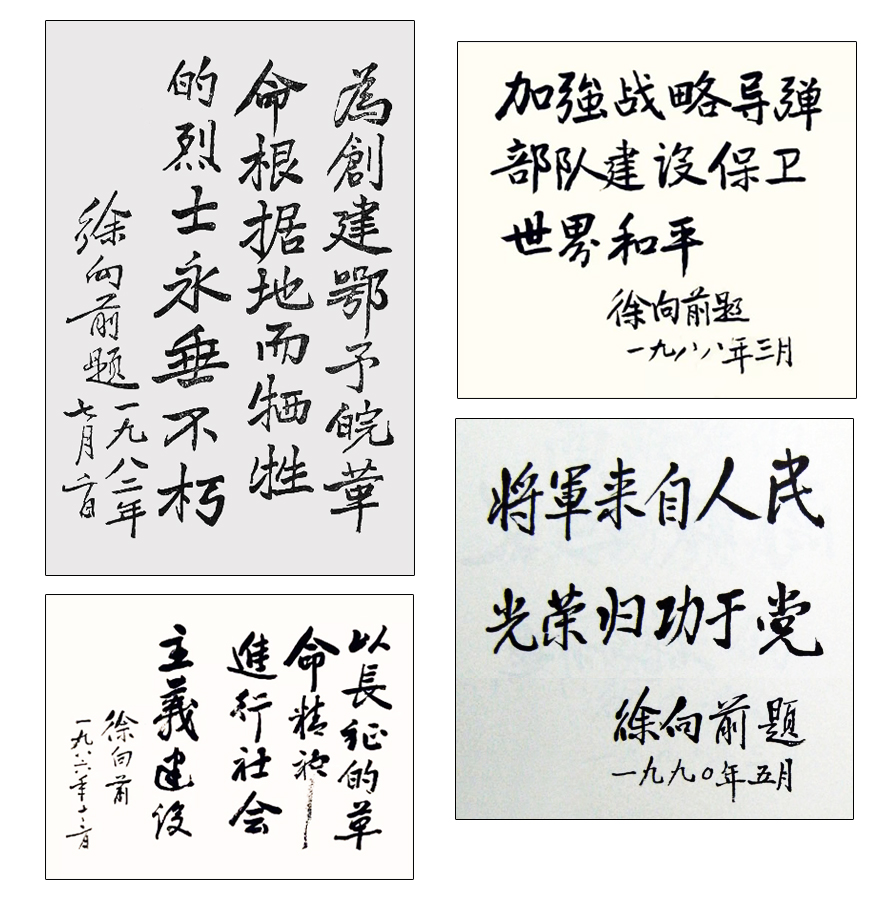 為創建鄂予皖革
命根据地而牺牲
的烈士永垂不朽
徐向前题
一九八二年
七月二日
加強战略导弹
部队建设保卫
世界和平
徐向前题
一九八八年三月
以長征的革
命精神
進行社会
主義建设
徐向前
一九八六年十二月
将軍来自人民
光荣归功于党
徐向前题
一九九〇年五月